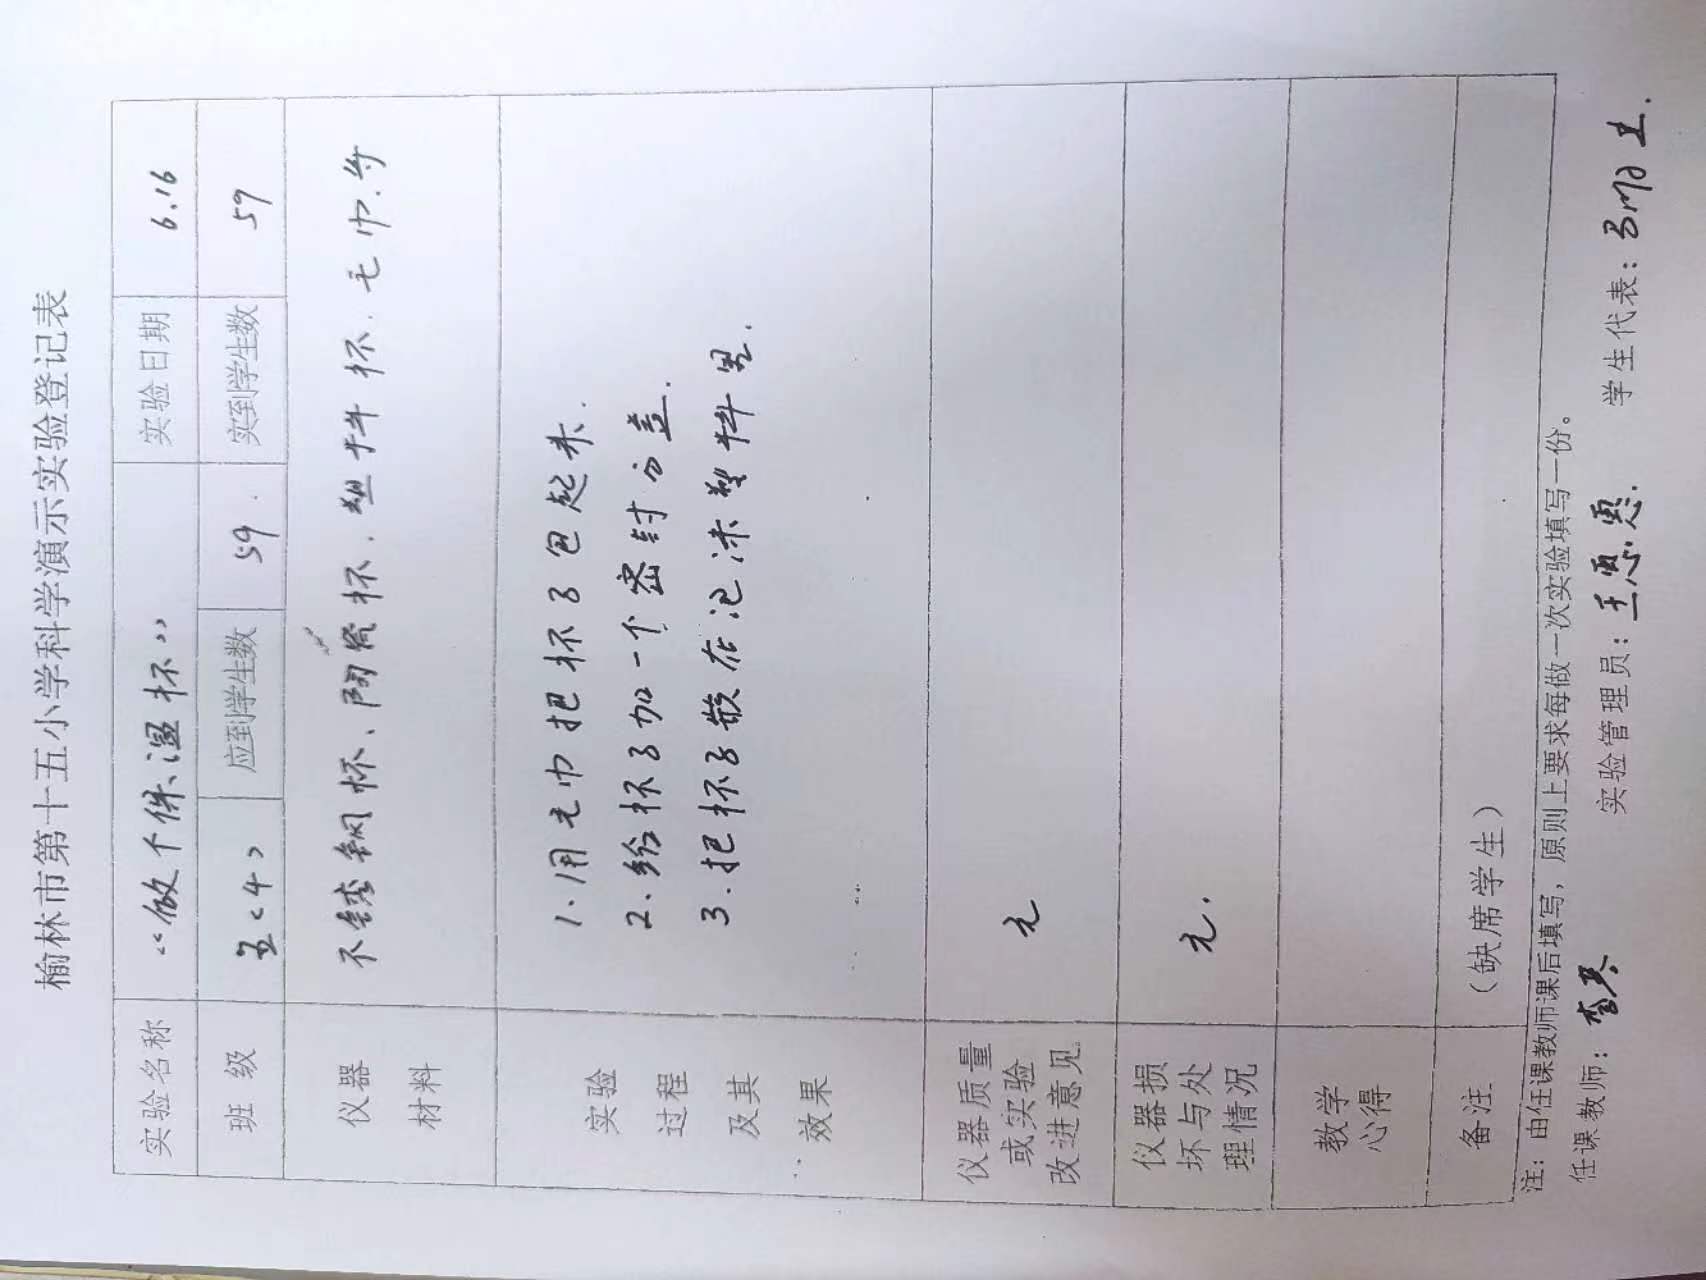 榆林市第十五小学科学演示实验登记表
实验名称 “做个保温杯” 实验日期 6.16
班 级 五<4> 应到学生数 59. 实到学生数 59
仪器
材料
不锈钢杯、陶瓷杯、塑料杯、毛巾.等
实验
过程
及其
效果
1.用毛巾把杯子包起来.
2.给杯子加一个密封的盖.
3.把杯子嵌在泡沫塑料里.
仪器质量
或实验
改进意见
无
仪器损
坏与处
理情况
无.
教学
心得
备注 （缺席学生）
注：由任课教师课后填写，原则上要求每做一次实验填写一份。
任课教师： 实验管理员：王惠惠. 学生代表：